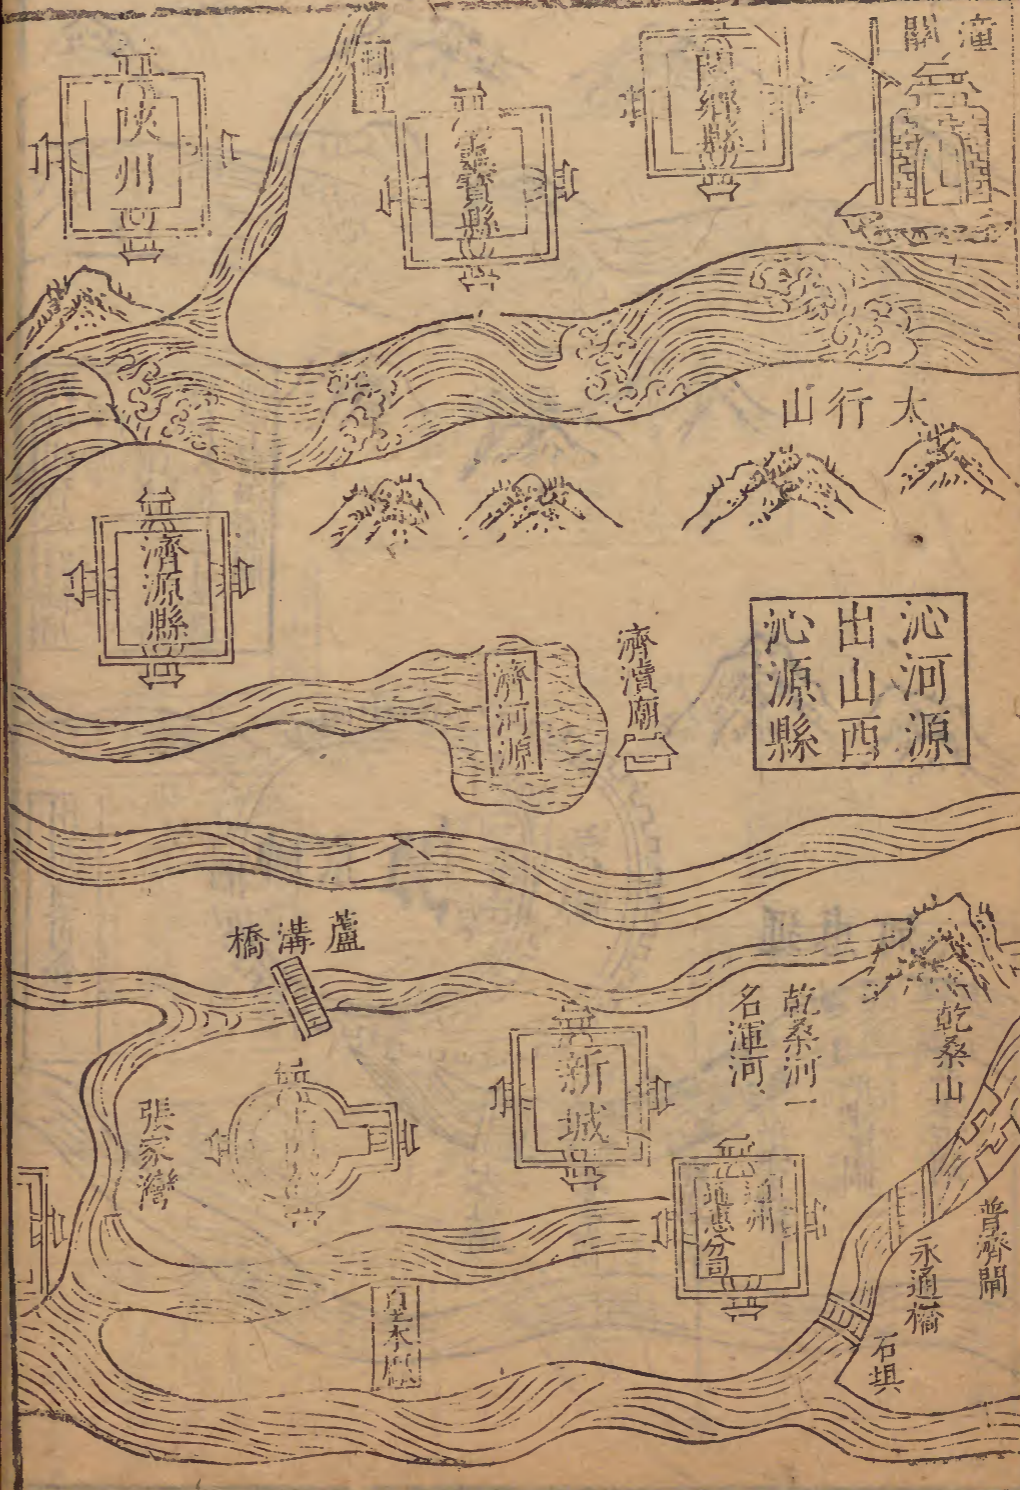 潼關
閿鄉縣
靈寶縣
陝州
太行山
濟源縣
沁河源
出山西
沁源縣
濟瀆廟
濟河源
蘆溝橋
乾桑山
乾桑河一
名渾河
新城
張家灣
通州
通惠分司
普濟閘
永通橋
石埧
皇木厰